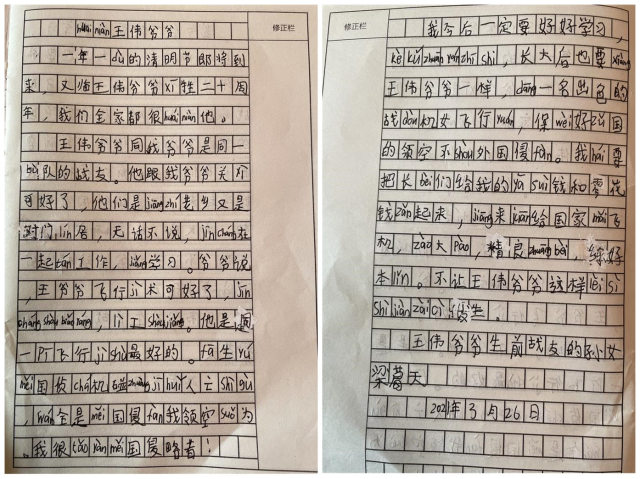 huái niàn王伟爷爷
修正栏
一年一dù的清明节即将到
来，又临王伟爷爷xī牲二十周
年，我们全家都很huái niàn他。
王伟爷爷同我爷爷是同一
bù队的战友。他跟我爷爷关xì
可好了，他们是jiāng zhí老乡又是
对门lín居，无话不说，jīng cháng在
一起tán工作，jiǎng学习。爷爷说
，王爷爷飞行jì术可好了，jīn
zhāng shòu biǎo yáng，lì工shòu jiǎng。他是
一个飞行jì shù最好的。fā生
měi国侦chá机zhuàng jī huǐ人亡shì gù
，wán全是měi国侵fàn我领空suǒ为
。我很tǎo yàn měi国侵略者！
修正栏
我今后一定要好好学习，
kè kǔ zhuān yán zhī shi，长大后也要xiàng
王伟爷爷一样，dāng一名出色的
战dòu机女飞行yuán，保wèi好我国
的领空不shòu外国侵fàn。我hái要
把长bèi们给我的yā suì钱和零花
钱zǎn起来，jiāng来juān给国家mǎi飞
机，zào大pào，精良zhuāng bèi，练好
本lǐng。不让王伟爷爷这样lèi sì
shì jiàn zài cì发生。
王伟爷爷生前战友的孙女
梁葛天
2021年3月26日